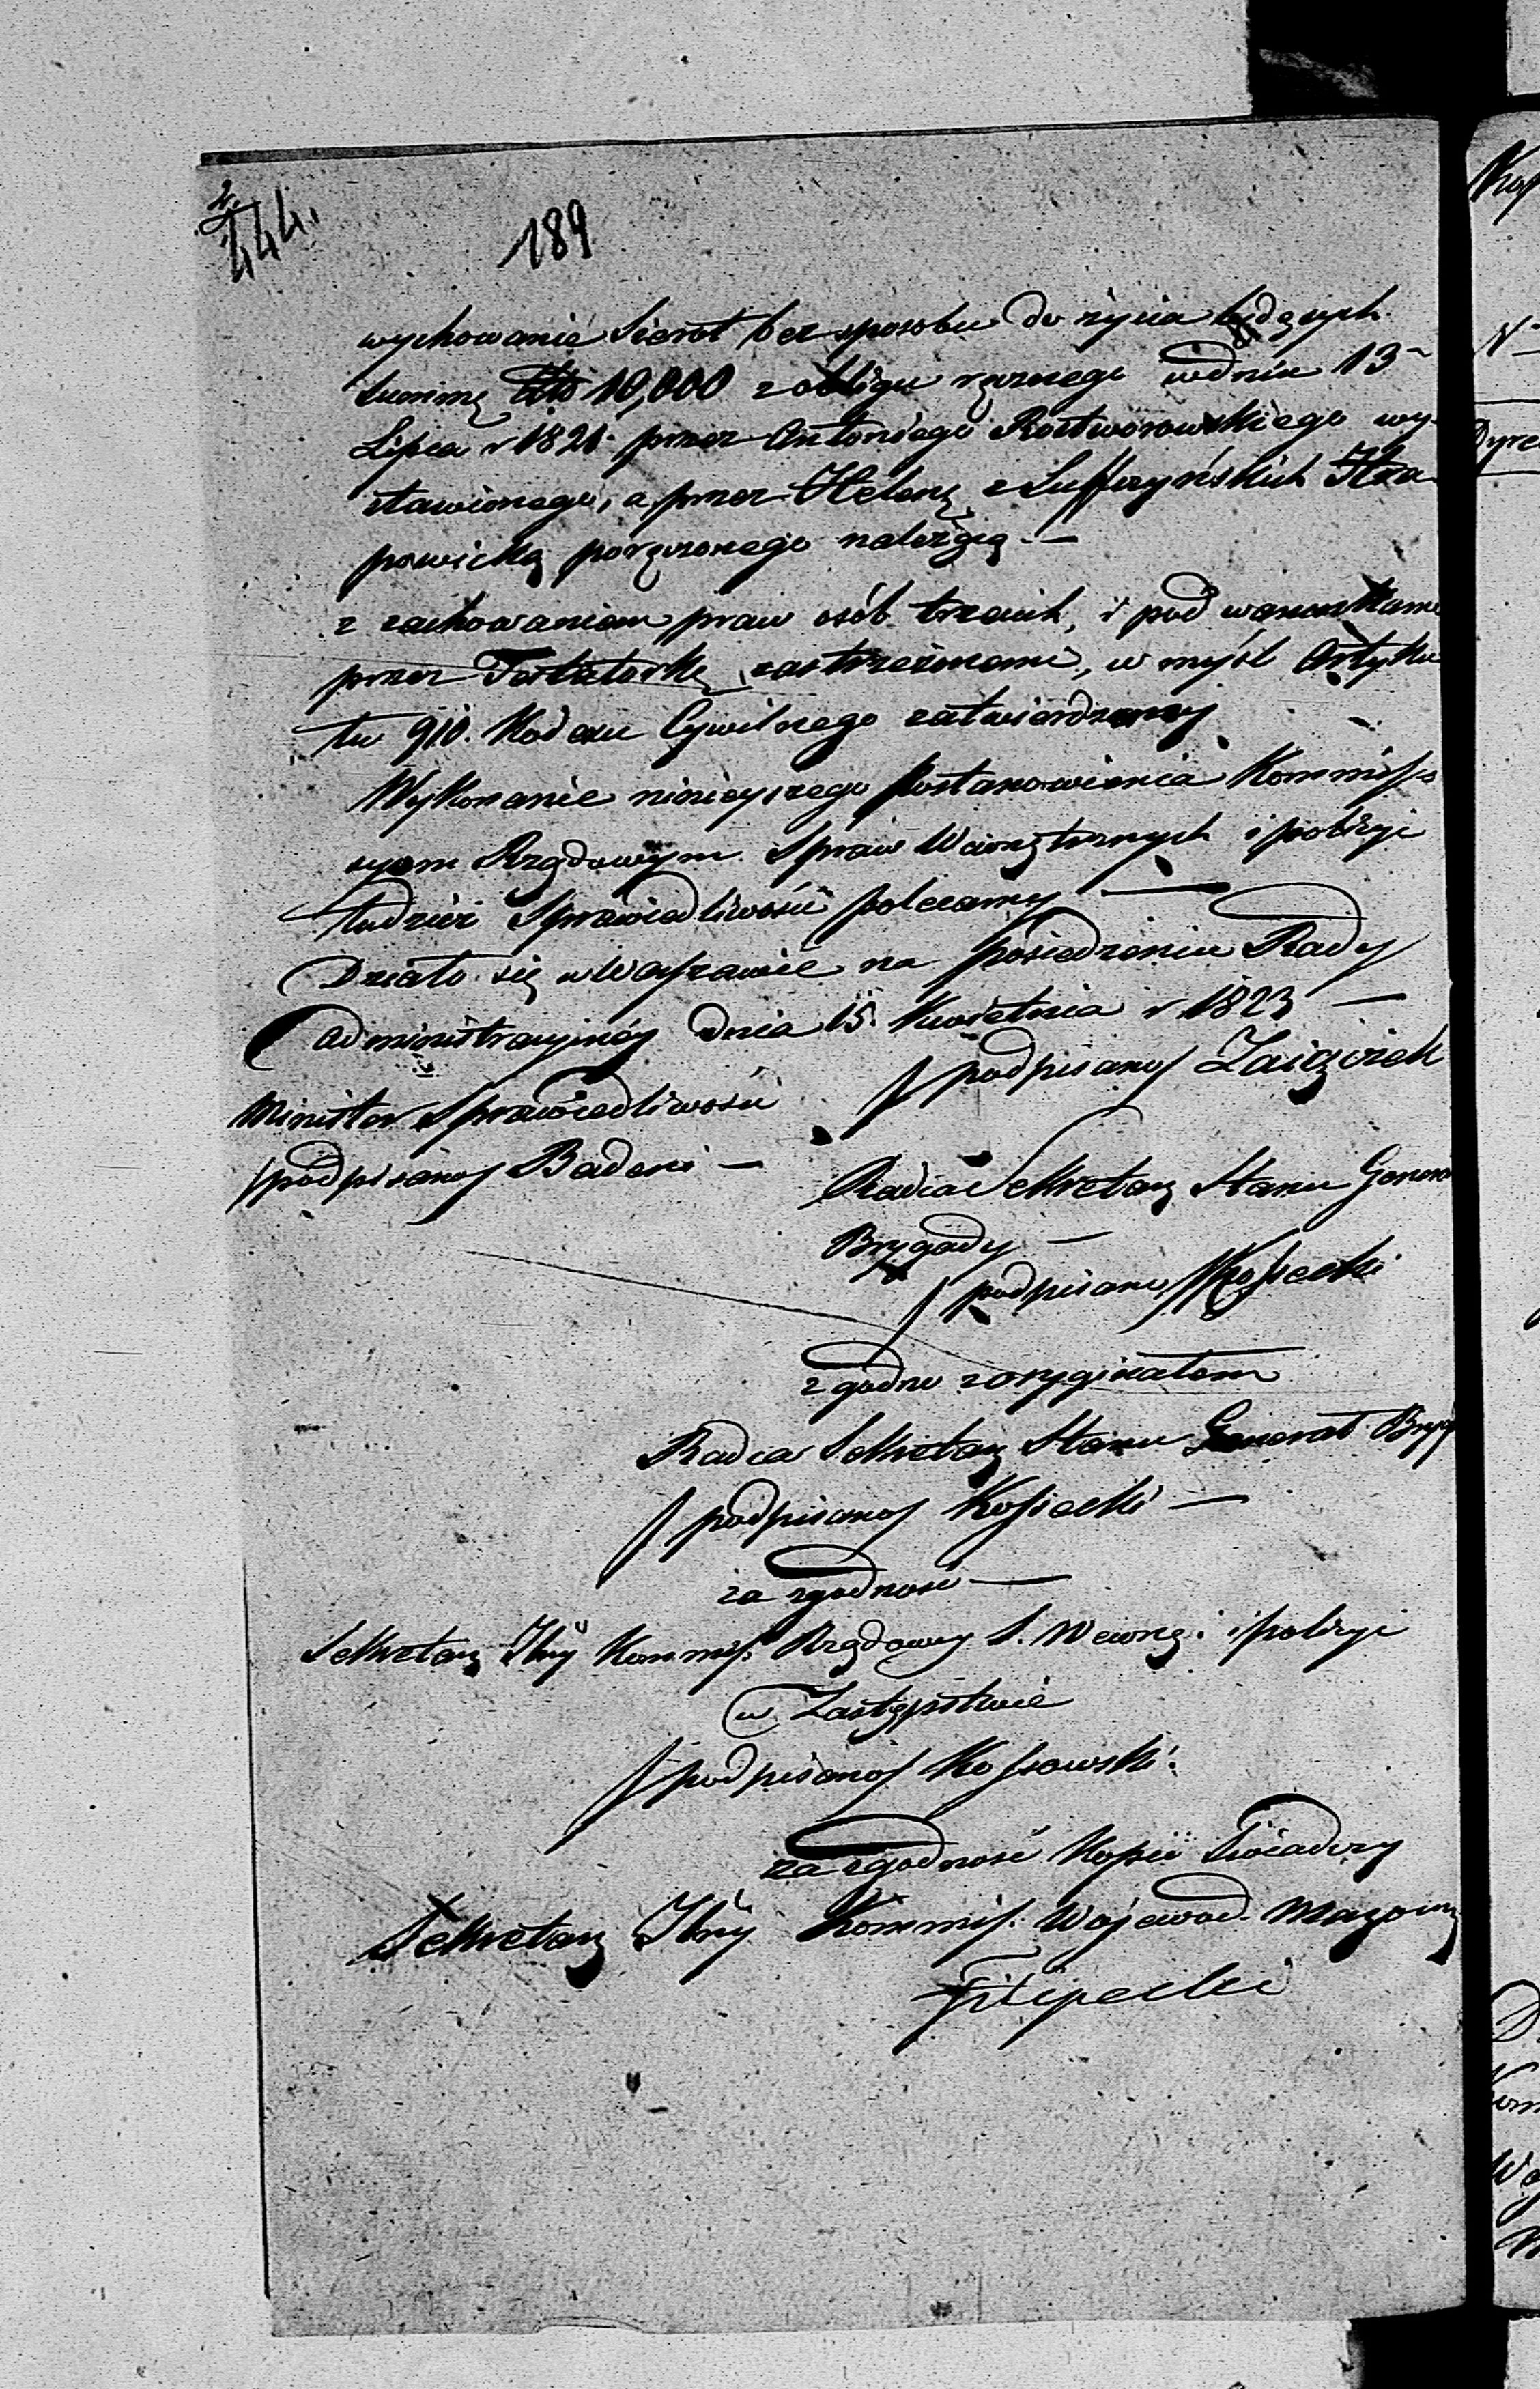 444.
189
wychowanie Sierot bez sposobu do życia będących
Summę 10,000 z obligu ręcznego w dniu 13
Lipca r 1821 przez Antoniego Rostworowskiego wy-
stawionego, a przez Helenę z Suffczyńskich
powicką poręczonego należącą. —
z zachowaniem praw osób trzecich, i pod warunkami
przez Testatorkę zastrzeżonemi, w myśl Artyku
łu 910. Kodexu Cywilnego zatwierdzamy
Wykonanie ninieyszego Postanowienia Kommis-
syom Rządowym Spraw Wewnętrznych i policyi
tudzież Sprawiedliwości polecamy —
Działo się w Warszawie na posiedzeniu Rady
Administracyinéy dnia 15. Kwietnia r 1823 —
/podpisany/ Zaiączek
Minister Sprawiedliwości
/podpisano/ Badeni —
Radca Sekretarz Stanu Generał
Brygady —
/podpisano/ Kossecki
zgodno z oryginałem
Radca Sekretarz Stanu Generał Bryg
/podpisano/ Kossecki —
za zgodność —
Sekretarz Jlny Kommiss. Rządowey S. Wewnę. i policyi
w Zastępstwie
/podpisano/ Kossowski.
za zgodność Kopii Swiadczy
Sekretarz Jlny Kommiss. Wojewod. Mazow
Filipecki